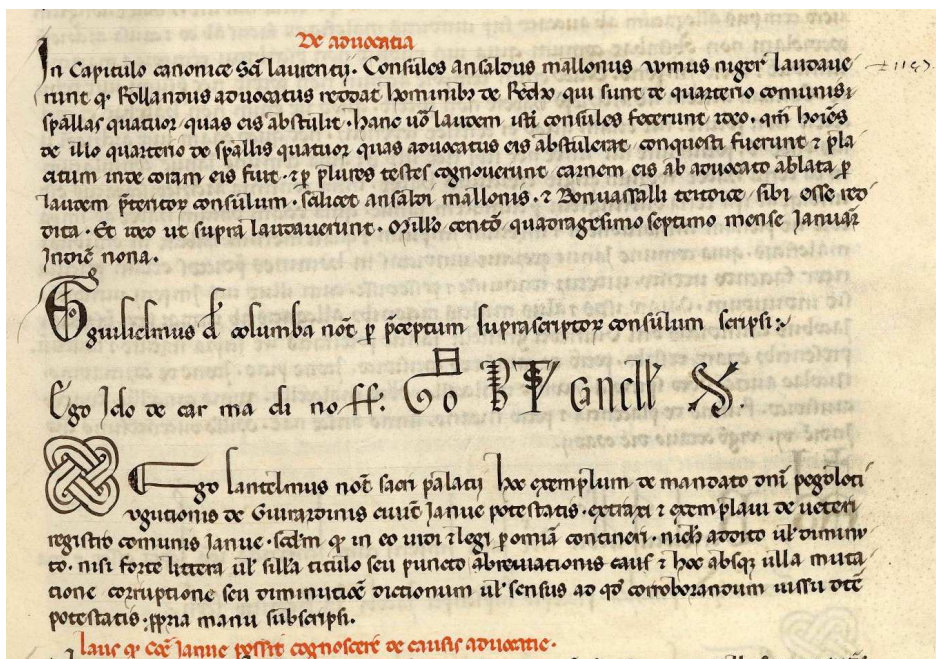 De aduocatia
In Capitulo canonice Sc̄i laurentij. Consules ansaldus mallonus vvmus niger laudaue
runt q̄ Rollandus aduocatus reddat hominibȝ de Redo qui sunt de quarterio comunis
spallas quatuor quas eis abstulit. hanc uō laudem isti consules fecerunt ideo. qm̄ hoīes
de illo quarterio de spallis quatuor quas aduocatus eis abstulerat conquesti fuerunt ⁊ pla
citum inde coram eis fuit. ⁊ ꝑ plures testes cognouerunt carnem eis ab aduocato ablatā ꝑ
laudem p̄teritoꝝ consulum. scilicet ansaldi mallonis. ⁊ Bonuassalli teitoice sibi esse red
dita. Et ideo ut supra laudauerunt. Mill̄o centō quadragesimo septimo mense Januar̄
Indic̄ nona.
Ego guilielmus d̄ columba not̄ ꝑ p̄ceptum suprascriptoꝝ consulum scripsi
Ego Ido de car ma di no ff.
Ego lantelmus not̄ sacri palatij hoc exemplum de mandato dn̄i pegoloti
vgutionis de Guirardinis ciuit̄ Ianue potestatis. extraxi ⁊ exemplaui de ueteri
registro comunis Ianue. scd̄m q̄ in eo uidi ⁊ legi ꝑ omīa contineri. nich̄ addito ul̄ diminu
to. nisi forte littera ul̄ sill̄a titulo seu puncto abreuiationis caus̄ ⁊ hoc absqȝ ulla muta
cione corruptione seu diminutiōe dictionum ul̄ sensus ad qđ corroborandum iussu dc̄te
potestatis. ꝓpria manu subscripsi.
laus q̄ Cōe Ianue possit cognoscere de causis aduocatie.